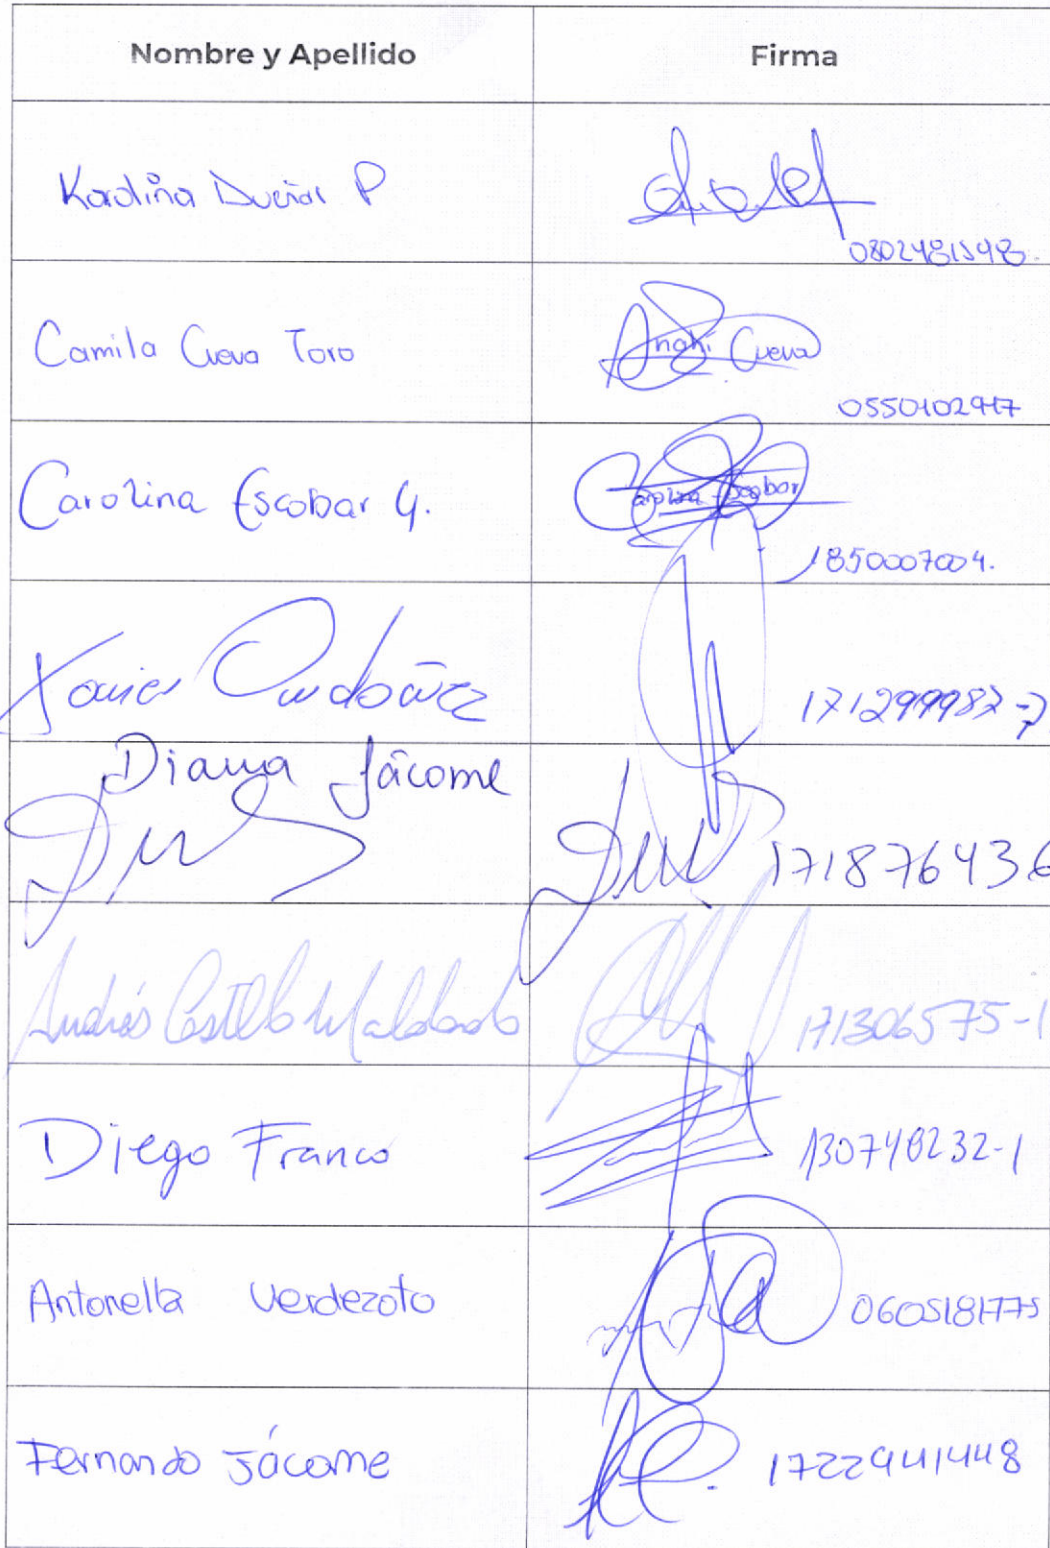 Nombre y Apellido Firma
Karolina Dueñas P
080248154
Camila Cueva Toro Anahí Cueva
0550102947
Carolina Escobar G. Carolina Escobar
1850007004.
Xavier Ordóñez 171299987-7
Diana Jácome
171876436
Andrés Castillo Maldonado 171306575-1
Diego Franco 130740232-1
Antonella Verdezoto 0605181775
Fernando Jácome 1722941448